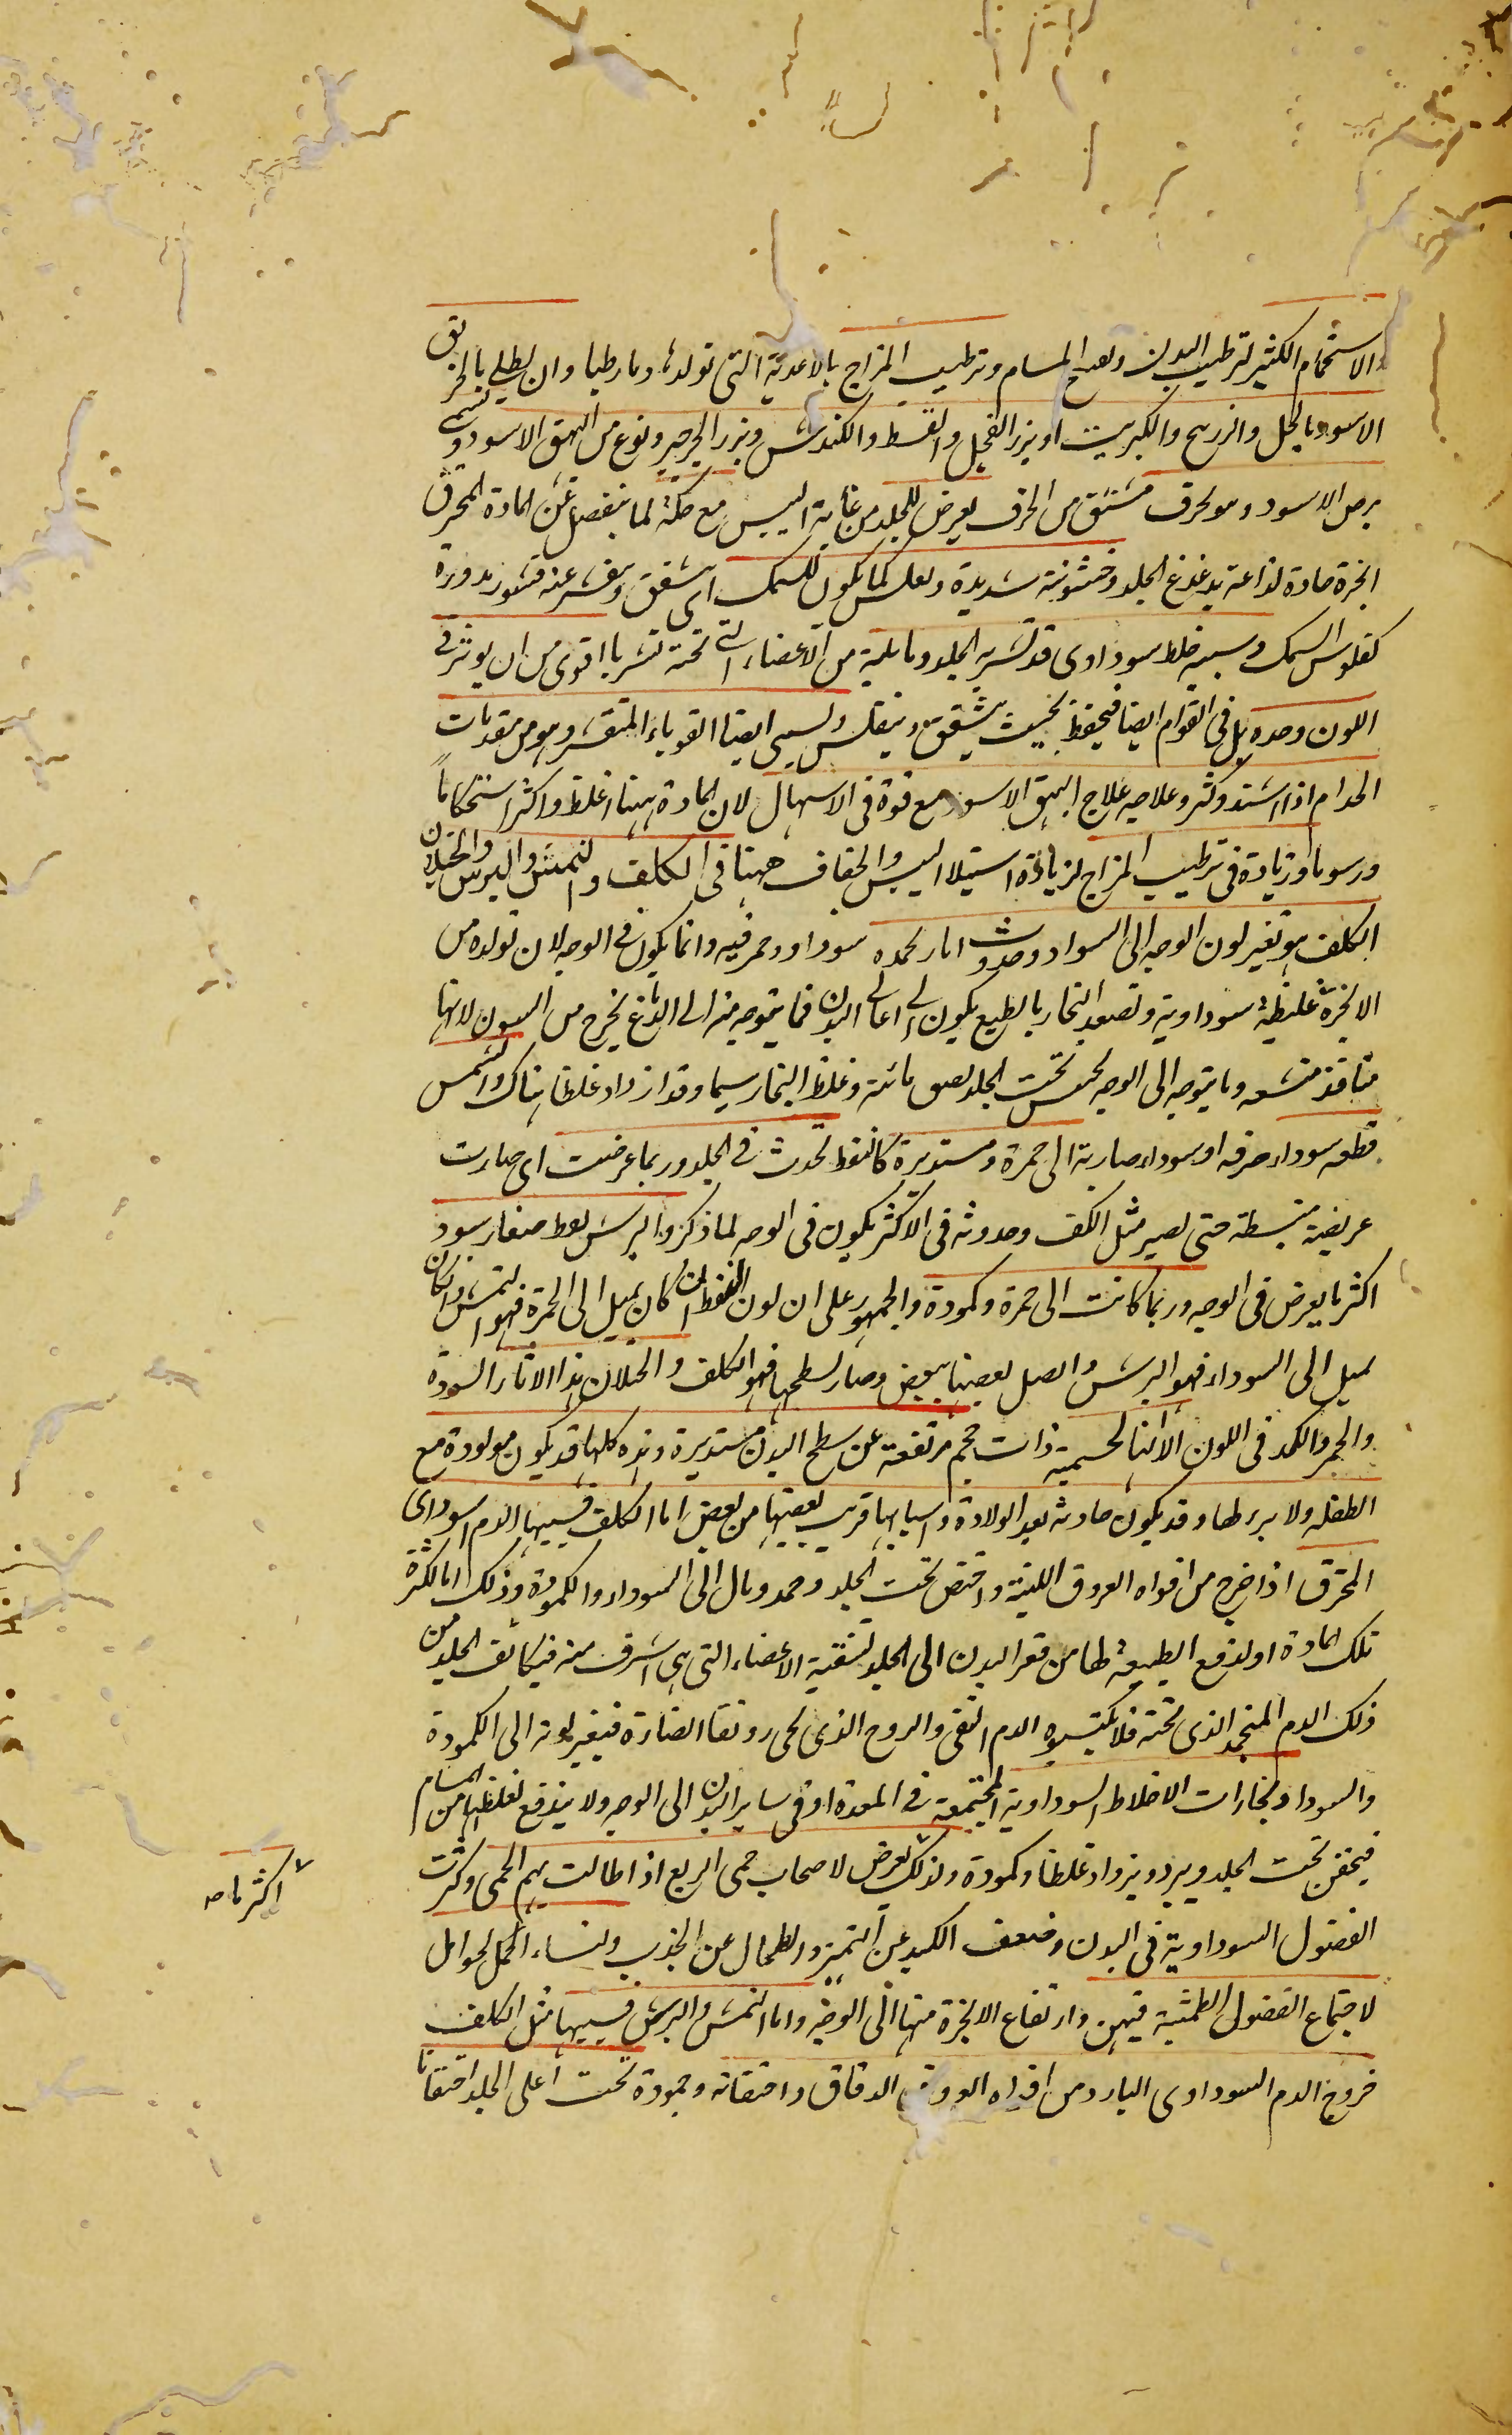 والاستحمام الكثير لترطيب البدن وتفتيح المسام وترطيب المزاج بالاغدية التى تولد دما رطبا وان يطلى بالخربق
الاسود بالخل والزرنيخ والكبريت او بزر الفجل والقسط والكندش وبزر الجرجير ونوع من البهق الاسود وتسمى
برص الاسود وهو تحرف مشتق من الخزف يعرض للجلد من غاية اليبس مع حكة لما ينفصل عن المادة المحترق
ابخرة حادة لذاعة يدغدغ الجلد وخشونة شديدة وتفلس كما يكون للسمك اى يتشقق ويتقشر عنه قشور مدورة
كفلوس السمك وسببه خلط سوداوى قد تشربه الجلد وما يليه من الاعضاء التى تحته تشربا اقوى من ان يوثر فى
اللون وحده بل فى القوام ايضا فيحفظ بحيث يتشقق ويتفلس ويسمى ايضا القوباء المتقشر وهو من مقدمات
الجدام اذا اشتد وكثر وعلاجه علاج البهق الاسود مع قوة فى الاسهال لان المادة ههنا اغلظ واكثر استحكاماً
ورسوبا وزيادة فى ترطيب المزاج لزيادة استيلا اليبس والجفاف ههنا فى الكلف والنمش والبرش والخيلان
الكلف هو تغير لون الوجه الى السواد وحدوث اثار كمده سود او حمر فيه وانما يكون فى الوجه لان تولده من
الابخرة غليظة سوداوية وتصعد البخار بالطبع يكون الى اعالى البدن فما يتوجه منه الى الدماغ يخرج من السون لانها
منافذ متسعه وما يتوجه الى الوجه يحتبس تحت الجلد لصفاقته وغلظ البخار سيما وقد ازداد غلظا هناك والنمش
قطعه سوداء صرفه او سوداء ضاربة الى حمرة ومستديرة كالنقط تحدث فى الجلد وربما عرضت اى صارت
عريضة منبسطة حتى يصير مثل الكلف وحدوثه فى الاكثر يكون فى الوجه لما ذكر والبرش نقط صغار سود
اكثر ما يعرض فى الوجه وربما كانت الى حمرة وكمودة والجمهور على ان لون النقط ان كان يميل الى الحمرة فهو النمش وان كان
يميل الى السوداء فهو البرش واتصل بعضها ببعض وصار لسطحها فهو الكلف والخيلان هذا الاثار السودة
والحمر والكمد فى اللون الا انها لحسمية ذات حجم مرتفعة عن سطح البدن مستديرة وهذه كلها قد يكون مولودة مع
الطفله ولا برء لها وقد يكون حادثه بعد الولادة واسبابها قريب بعضها من بعض اما الكلف فسببها الدم السوداوى
المحترق اذا خرج من افواه العروق اللينة واحتقن تحت الجلد وجمد ومال الى السوداء والكمودة وذلك اما لكثرة
تلك المادة او لدفع الطبيعة لها من قعر البدن الى الجلد لتنقية الاعضاء التى هى اشرف منه فيكاثف الجلد من
ذلك الدم المنجمد الذى تحته فلا يكتسوه الدم النقى والروح الذى يجى رونقا النضارة فيتغير لونه الى الكمودة
والسودا وبخارات الاخلاط السوداوية المجتمعة فى المعدة او فى ساير البدن الى الوجه ولا يندفع لغلظها من المسام
فيحتقن تحت الجلد ويبرد ويزداد غلظا وكمودة ولذلك يعرض لاصحاب حمى الربع اذا طالت بهم الحمى وكثرت
اكثر ما
الفضول السوداوية فى البدن وضعف الكبد عن التميز والطحال عن الجذب ولنساء الحمل الحوامل
لاجتماع الفضول الطمثية فيهن وارتفاع الابخرة منها الى الوجه واما النمش والبرش فسببها مثل الكلف
خروج الدم السوداوى البارد من افواه العروق الدقاق واحتقانه وجمودة تحت اعلى الجلد احتقانا